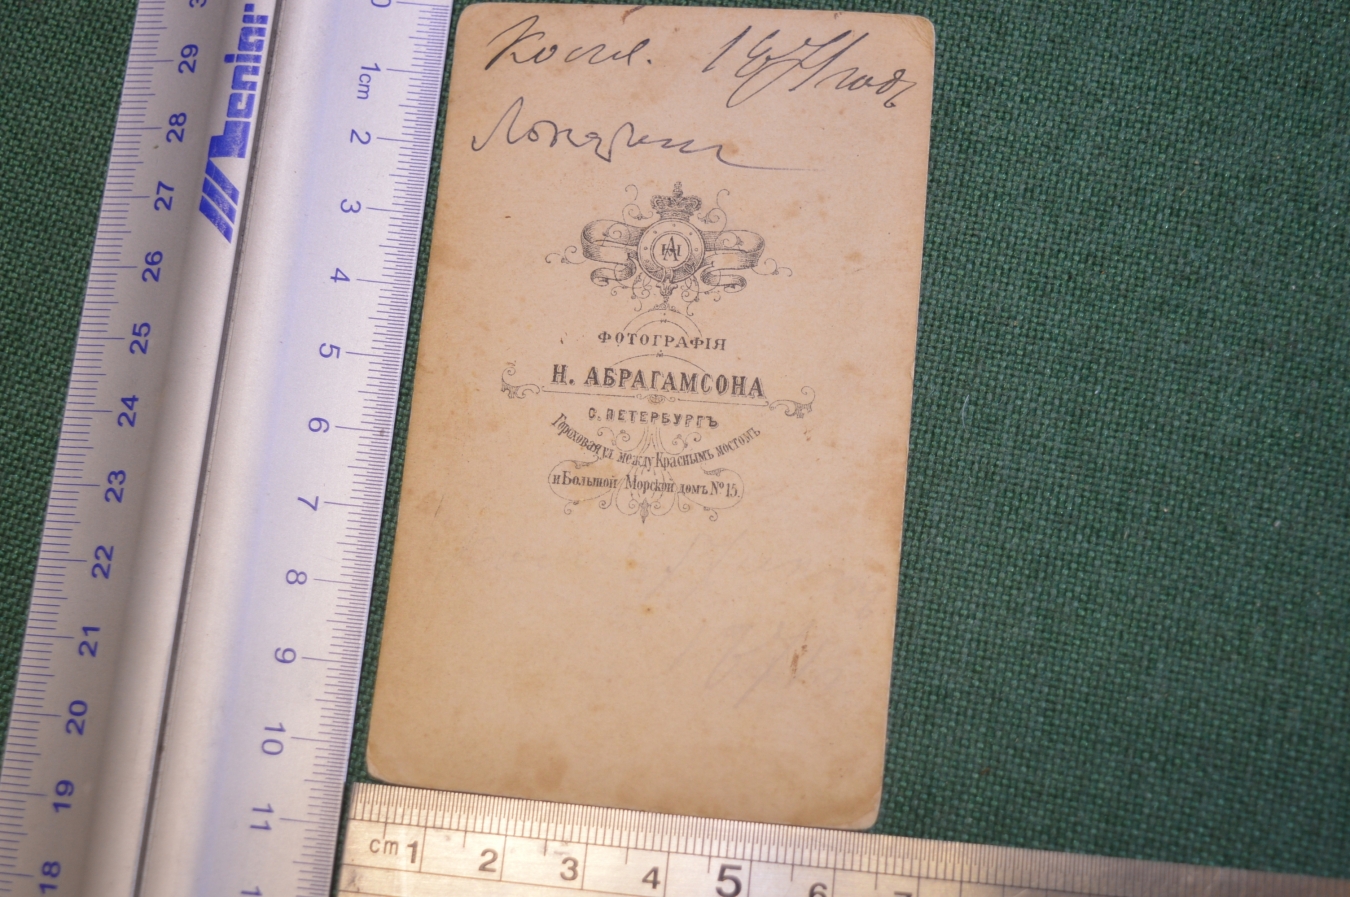 1871 годъ
НА
ФОТОГРАФІЯ
Н. АБРАГАМСОНА
С. ПЕТЕРБУРГЪ
Гороховая ул. между Краснымъ мостомъ
и Большой Морской домъ № 15.
Leniar
29
28
27
26
25
24
23
22
21
20
19
18
0
1cm
2
3
4
5
6
7
8
9
10
11
cm 1 2 3 4 5 6 7